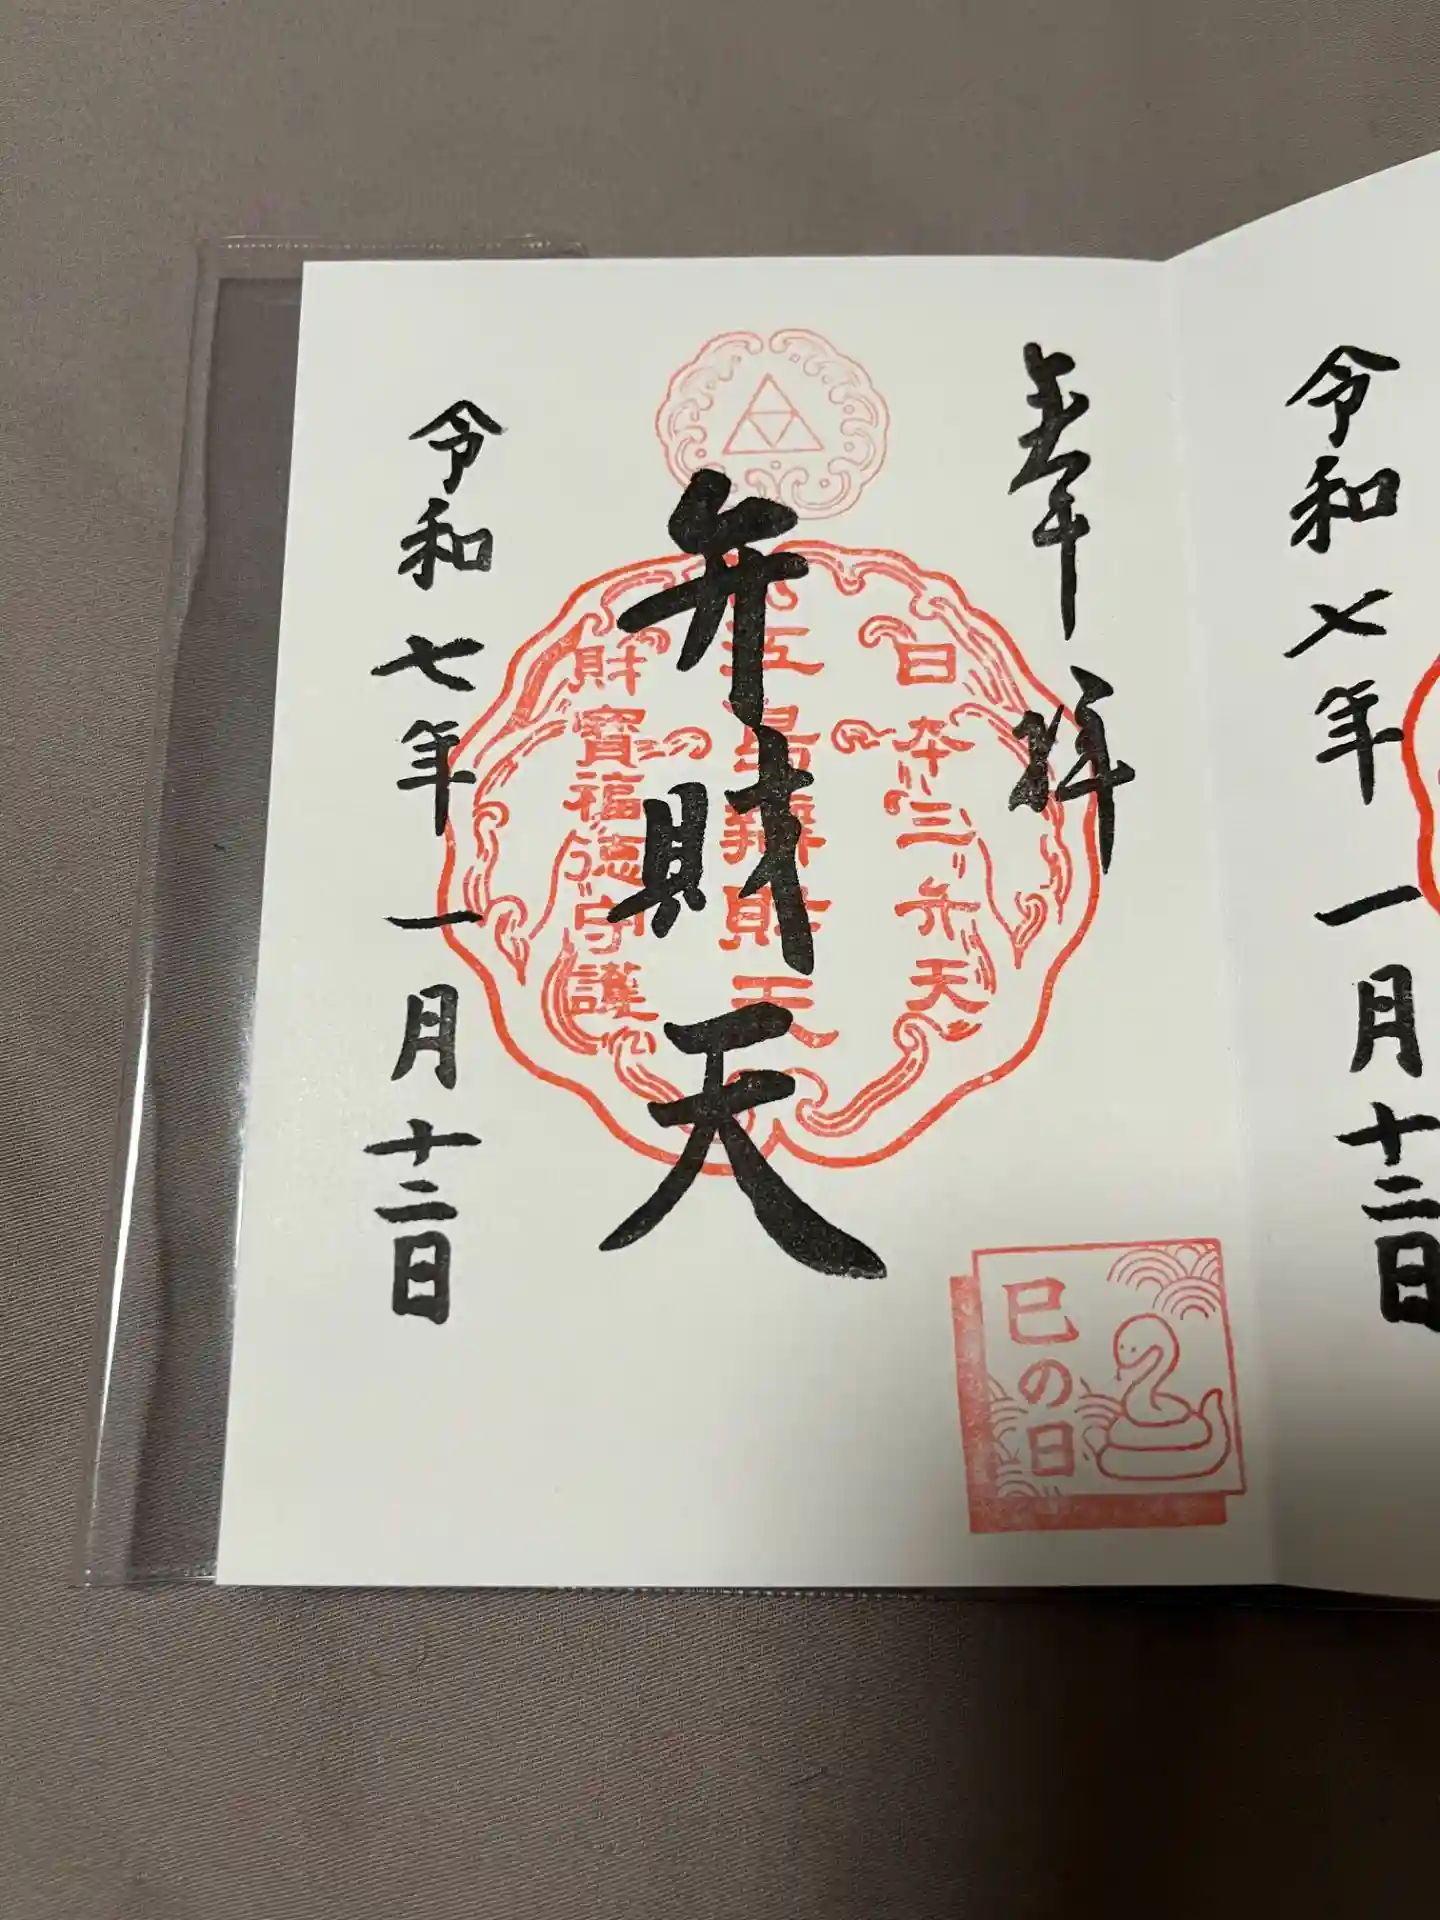 令和七年一月十二日
奉拝
日本三弁天
江島辨財天
財寶福徳守護
弁財天
巳の日
令和七年一月十二日